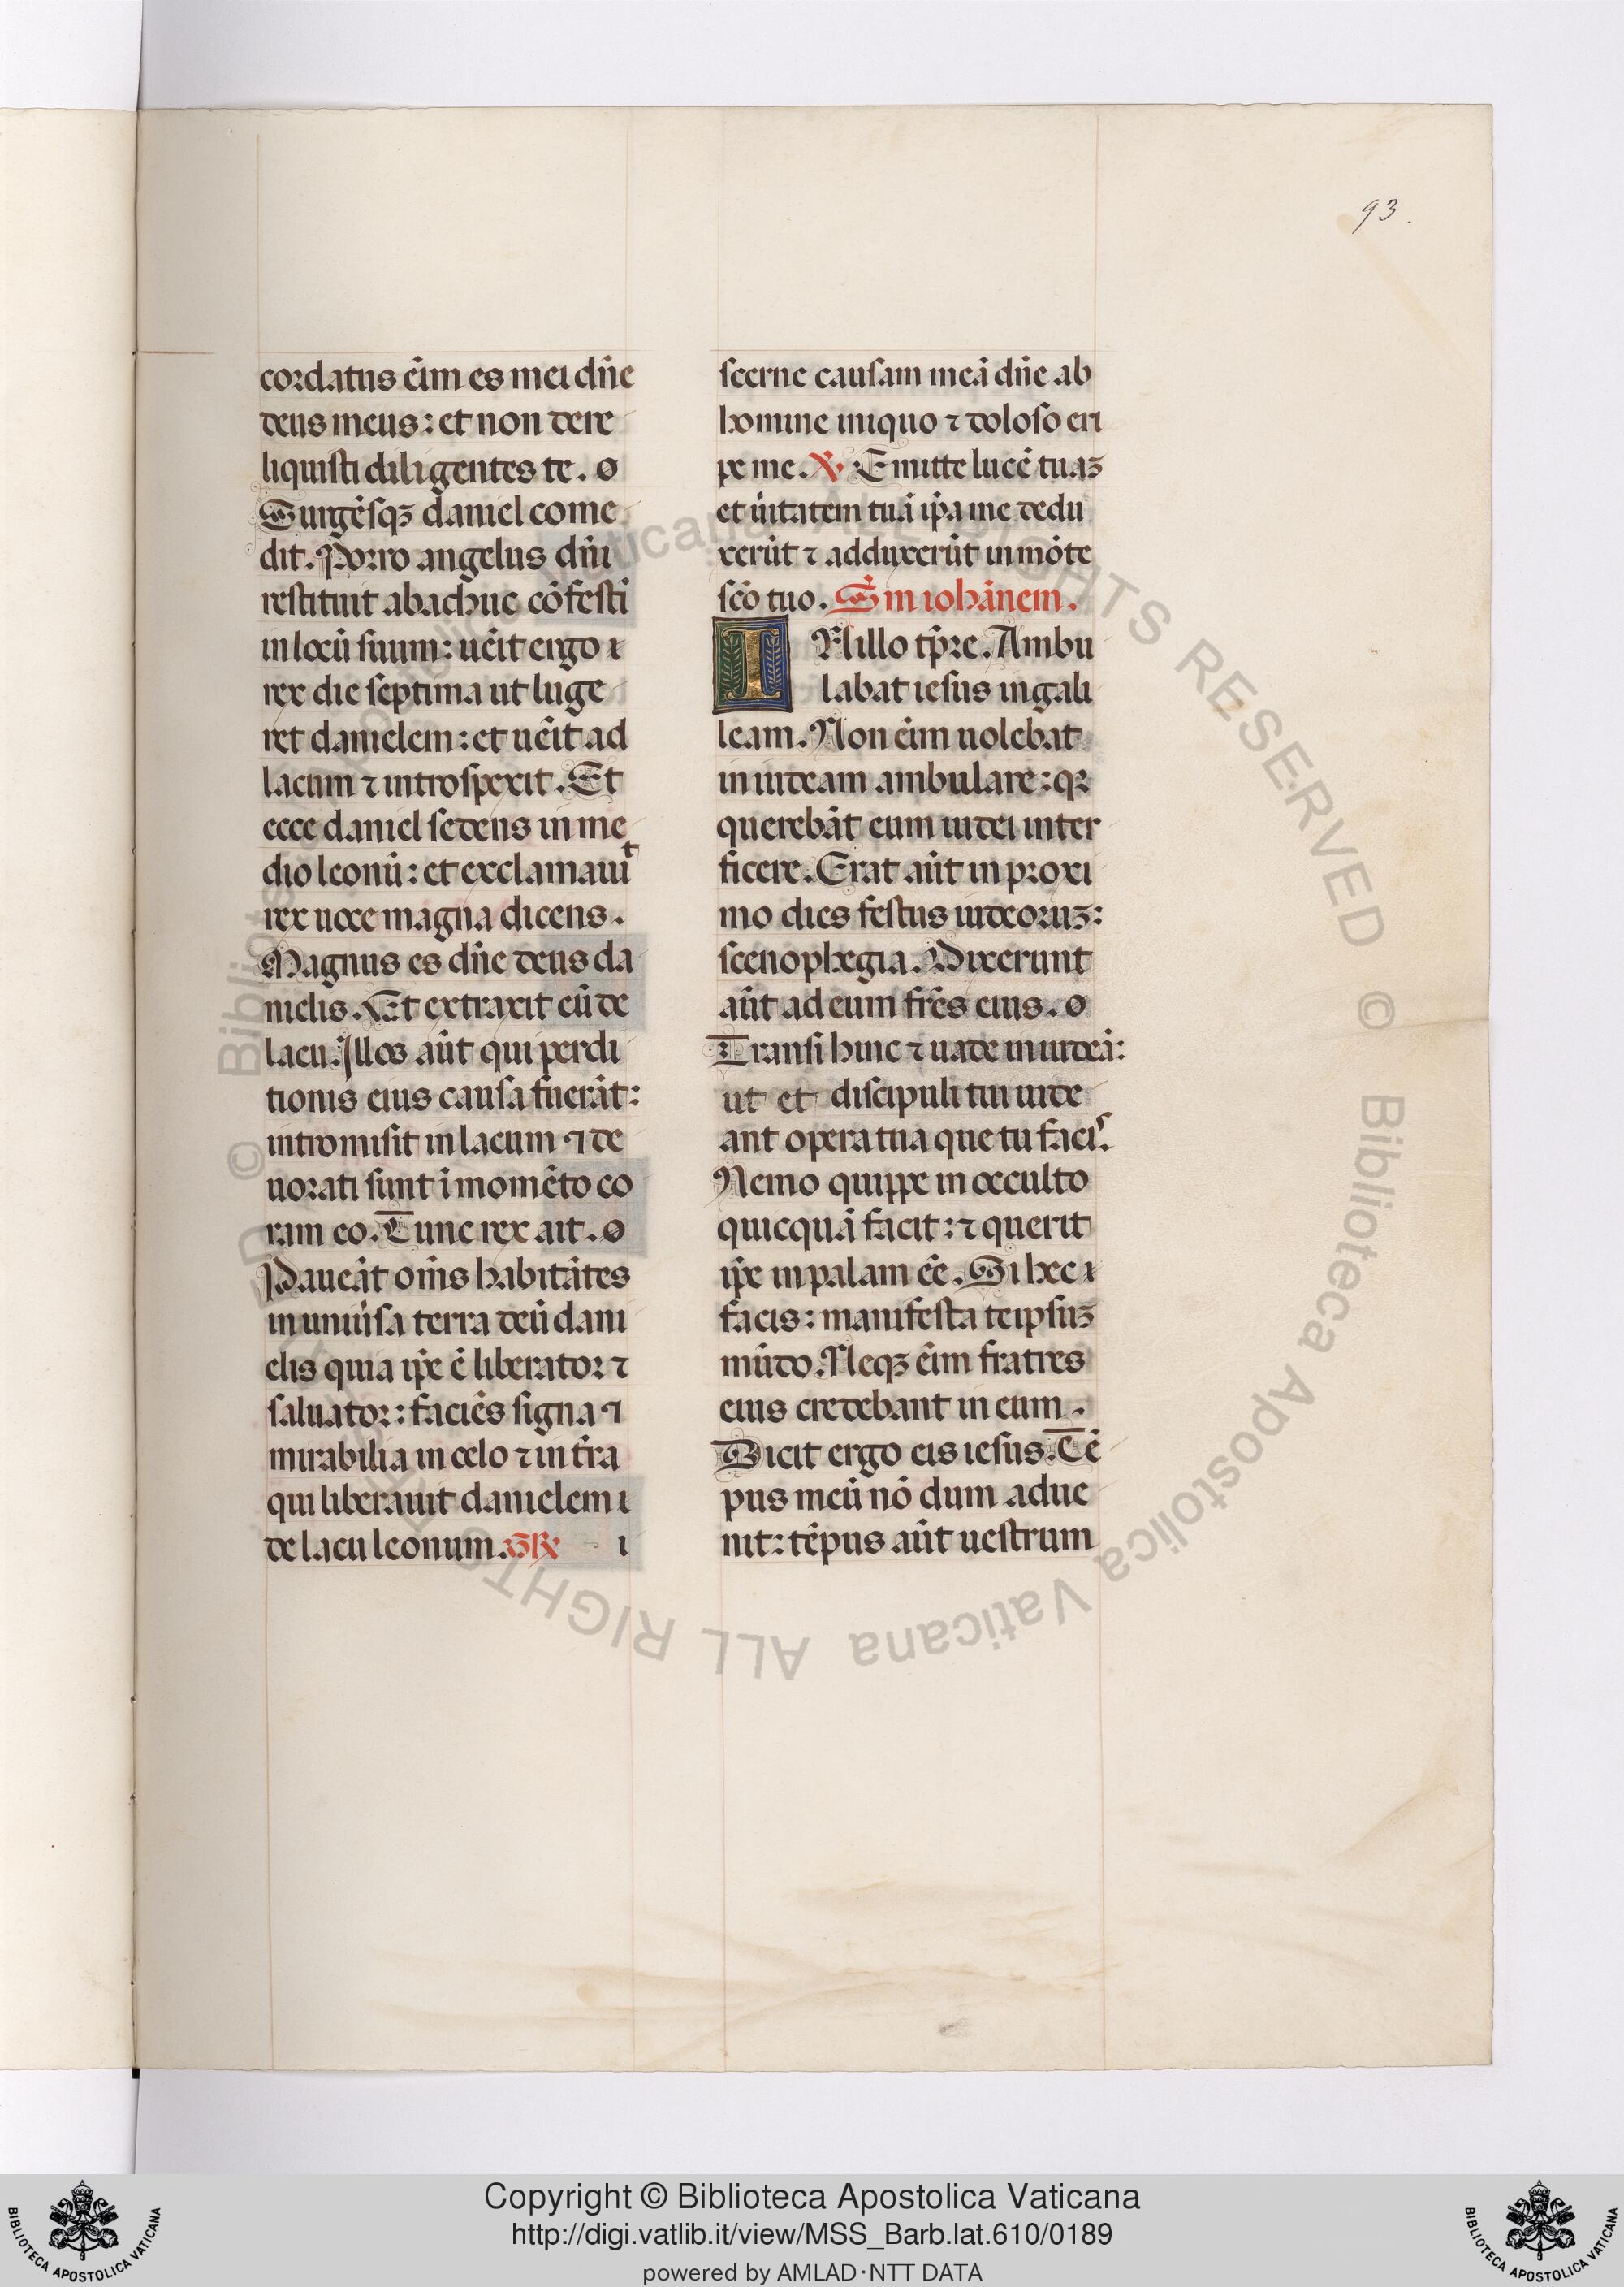 93.
cordatus ei̅m es mei dn̅e
deus meus: et non dere
liquisti diligentes te. o
Surge̅sqꝫ daniel come
dit. Porro angelus dn̅i
restituit abachuc co̅festi̅
in locu̅ suum: ue̅it ergo
rex die septima ut luge
ret danielem: et ue̅it ad
lacum ⁊ introspexit. Et
ecce daniel sedens in me
dio leonu̅: et exclamauit
rex uoce magna dicens.
Magnus es dn̅e deus da
nielis. Et extraxit eu̅ de
lacu. Illos au̅t qui perdi
tionis eius causa fuera̅t:
intromisit in lacum ⁊ de
uorati sunt i̅ mome̅to co
ram eo. Tunc rex ait. o
Pauea̅t om̅s habita̅tes
in uniu̅sa terra deu̅ dani
elis quia ip̅e e̅ liberator ⁊
saluator: facie̅s signa ⁊
mirabilia in celo ⁊ in t̅ra
qui liberauit danielem
de lacu leonum. GR̅ i
scerne causam mea̅ dn̅e ab
homine iniquo ⁊ doloso eri
pe me. V̅ Emitte luce̅ tuaꝫ
et u̅itatem tua̅ ip̅a me dedu
xeru̅t ⁊ adduxeru̅t in mo̅te
sc̅o tuo. S̅m ioha̅nem.
IN illo tp̅re. Ambu
labat iesus in gali
leam. Non ei̅m uolebat
in iudeam ambulare: qꝛ
quereba̅t eum iudei inter
ficere. Erat au̅t in proxi
mo dies festus iudeoruꝫ:
scenophegia. Dixerunt
au̅t ad eum fr̅es eius. o
Transi hinc ⁊ uade in iudea̅:
ut et discipuli tui uide
ant opera tua que tu facis.
Nemo quippe in occulto
quicqua̅ facit: ⁊ querit
ip̅e in palam e̅e. Si hec
facis: manifesta teipsuꝫ
mu̅do. Neqꝫ ei̅m fratres
eius credebant in eum.
Dicit ergo eis iesus. Te̅
pus meu̅ no̅ dum adue
nit: te̅pus au̅t uestrum
© Biblioteca Apostolica Vaticana ALL RIGHTS RESERVED © Biblioteca Apostolica Vaticana ALL RIGHTS RESERVED
BIBLIOTECA APOSTOLICA VATICANA
Copyright © Biblioteca Apostolica Vaticana
http://digi.vatlib.it/view/MSS_Barb.lat.610/0189
powered by AMLAD·NTT DATA
BIBLIOTECA APOSTOLICA VATICANA